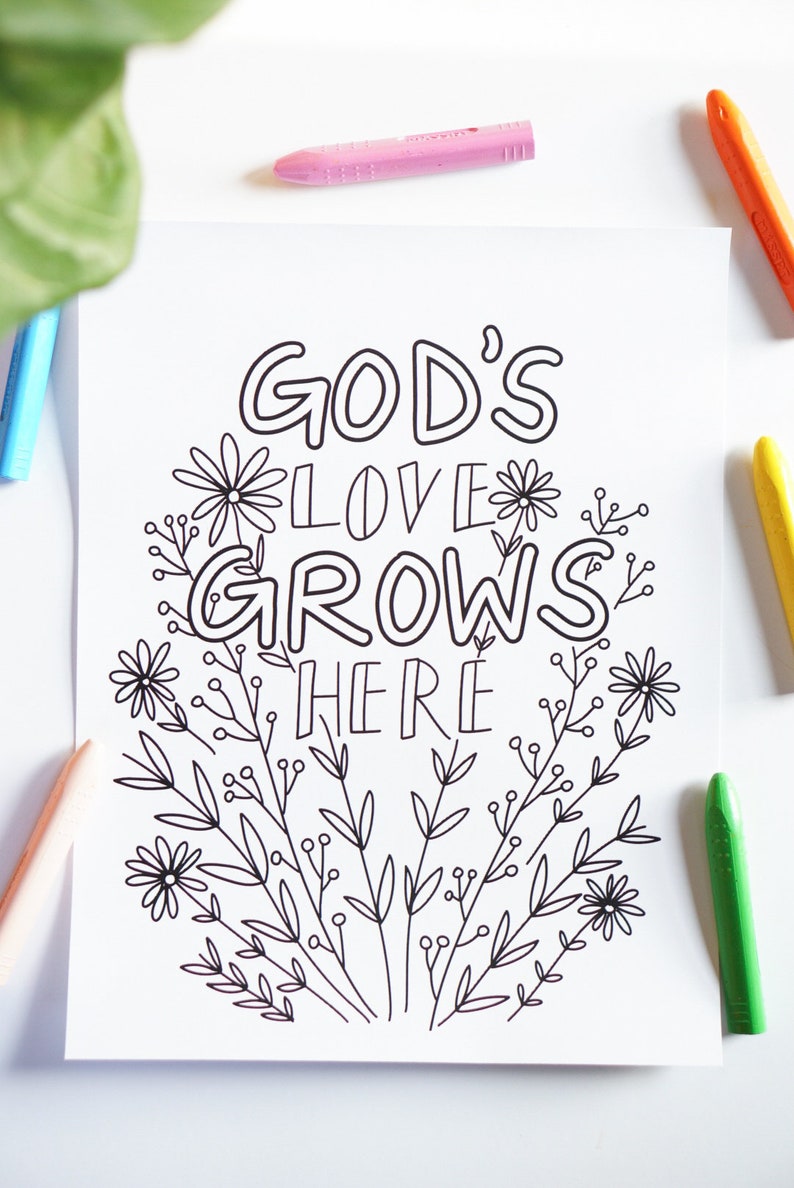 GOD'S
LOVE
GROWS
HERE